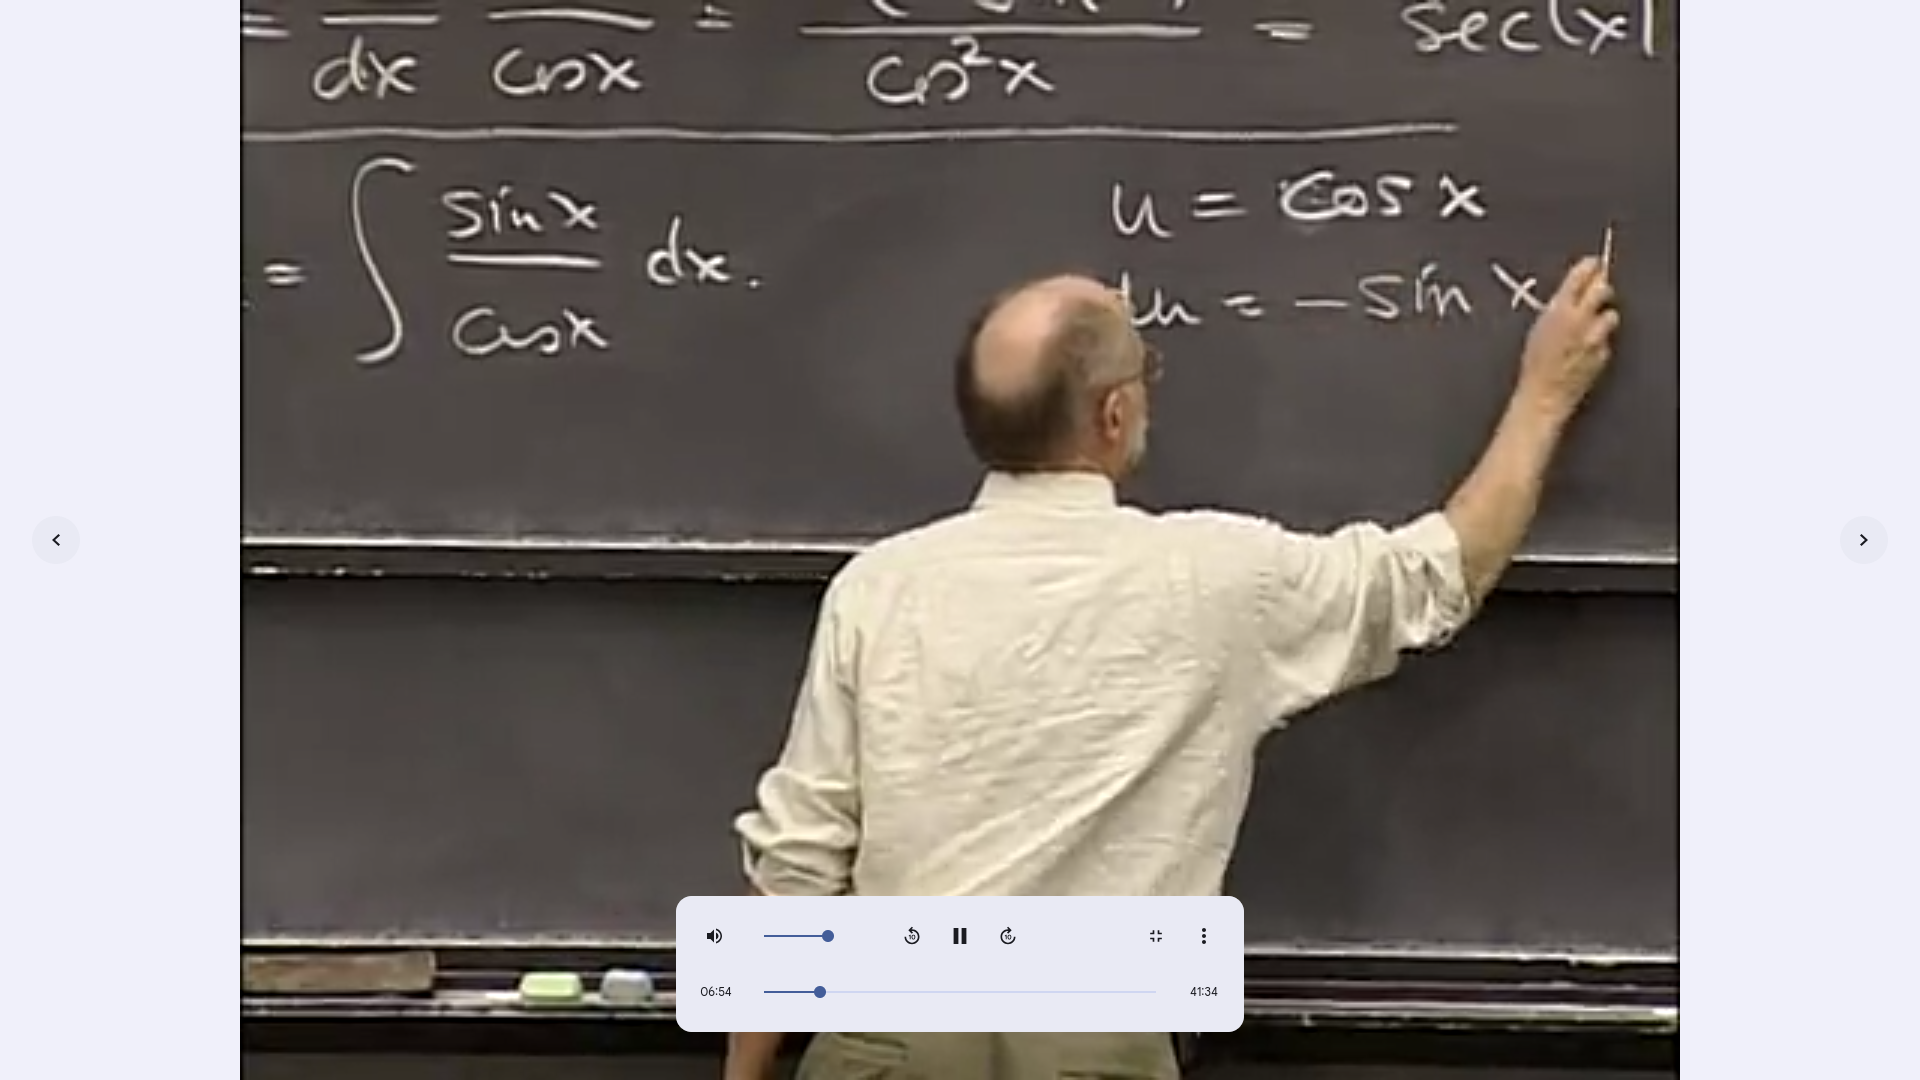 = dx cosx = cos²x = sec(x)
= ∫ sin x / cos x dx.
u = cos x
du = - sin x
06:54
41:34